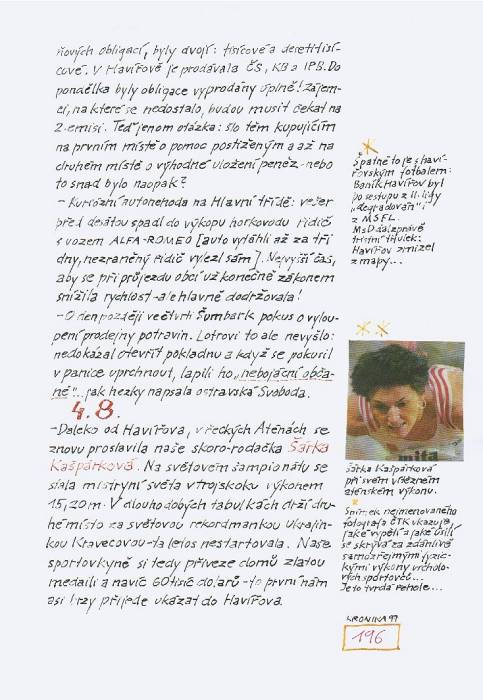 ňových obligací, byly dvojí: tisícové a desetitisí-
cové. V Havířově je prodávala ČS, KB a IPB. Do
pondělka byly obligace vyprodány úplně! Zájem-
ci, na které se nedostalo, budou musit čekat na
2. emisi. Teď jenom otázka: šlo těm kupujícím
na prvním místě o pomoc postiženým a až na
druhém místě o výhodné uložení peněz - nebo
to snad bylo naopak?
- Kuriózní autonehoda na Hlavní třídě: večer
před desátou spadl do výkopu horkovodu řidič
s vozem ALFA-ROMEO [auto vytáhli až za tři
dny, nezraněný řidič vylezl sám]. Nejvyšší čas,
aby se při průjezdu obcí už konečně zákonem
snížila rychlost - ale hlavně dodržovala!
- O den později ve čtvrti Šumbark pokus o vylou-
pení prodejny potravin. Lotrovi to ale nevyšlo:
nedokázal otevřít pokladnu a když se pokusil
v panice uprchnout, lapili ho „nebojácní obča-
né"... jak hezky napsala ostravská Svoboda.
4.8.
- Daleko od Havířova, v řeckých Aténách se
znovu proslavila naše skoro-rodačka Šárka
Kašpárková. Na světovém šampionátu se
stala mistryní světa v trojskoku výkonem
15,20 m. V dlouhodobých tabulkách drží dru-
hé místo za světovou rekordmankou Ukrajin-
kou Kravecovou - ta letos nestartovala. Naše
sportovkyně si tedy přiveze domů zlatou
medaili a navíc 60 tisíc dolarů - to první nám
asi brzy přijede ukázat do Havířova.
Špatně to je s haví-
řovským fotbalem:
Baník Havířov byl
po sestupu z II. ligy
„degradován" i
z MSFL.
MsD dal zprávě
tristní titulek:
Havířov zmizel
z mapy...
mita
Šárka Kašpárková
při svém vítězném
aténském výkonu.
Snímek nejmenovaného
fotografa ČTK ukazuje,
jaké vypětí a jaké úsilí
se skrývá za zdánlivě
samozřejmými fyzic-
kými výkony vrcholo-
vých sportovců...
Je to tvrdá řehole...
KRONIKA 97
196